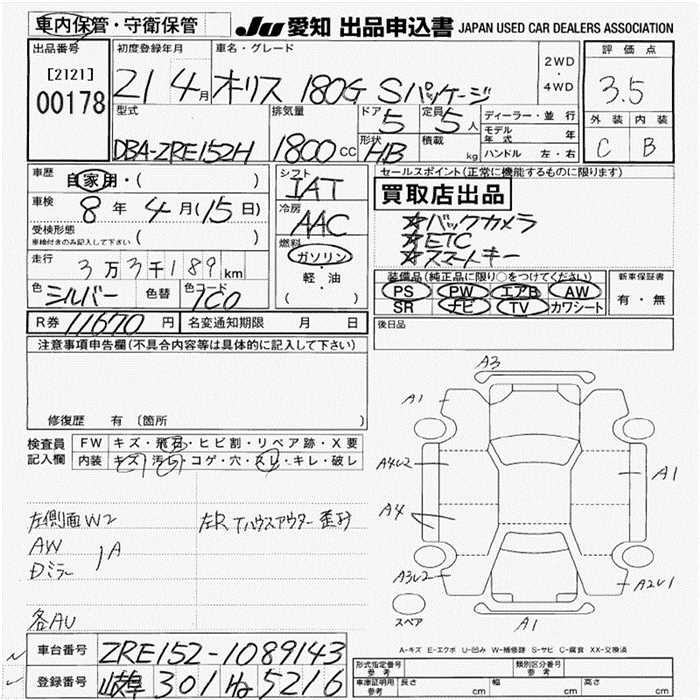 車内保管・守衛保管
JU 愛知 出品申込書 JAPAN USED CAR DEALERS ASSOCIATION
出品番号
[2121]
00178
初度登録年月
21 4月
車名・グレード
オーリス 180G Sパッケージ
2WD
・
4WD
評価点
3.5
外装 内装
C B
型式
DBA-ZRE152H
排気量
1800cc
ドア
5
定員
5人
形状
HB
積載
kg
ディーラー・並行
モデル年式 年
ハンドル 左・右
車歴
自家用・( )
車検
8年4月(15日)
受検形態
車検付きのみ記入して下さい ( )
走行
3万3千189km
色
シルバー
色替
色コード
1C0
シフト
IAT
冷房
AAC
燃料
ガソリン
・
軽・油
( )
R券 11670円
名変通知期限 月 日
セールスポイント(正常に機能するものに限ります)
買取店出品
☆バックカメラ
☆ETC
☆スマートキー
装備品(純正品に限り○をつけてください)
PS PW エアB AW
SR ナビ TV カワシート
新車保証書
有・無
後日品
注意事項申告欄(不具合内容等は具体的に記入して下さい)
修復歴 有〔箇所 〕
検査員記入欄
FW キズ・飛石・ヒビ割・リペア跡・X要
内装 キズ・汚レ・コゲ・穴・スレ・キレ・破レ
左側面W2
AW
Dミラー
A
各AU
A3
A1
A4U2
A4
A3U2
A1
A2U1
A1
スペア
A-キズ E-エクボ U-凹み W-補修跡 S-サビ C-腐食 XX-交換済
車台番号 ZRE152-1089143
登録番号 岐阜 301 ね 5216
形式指定番号
参考
類別区分番号
参考
車庫証明用
参考
長さ cm
幅 cm
高さ cm